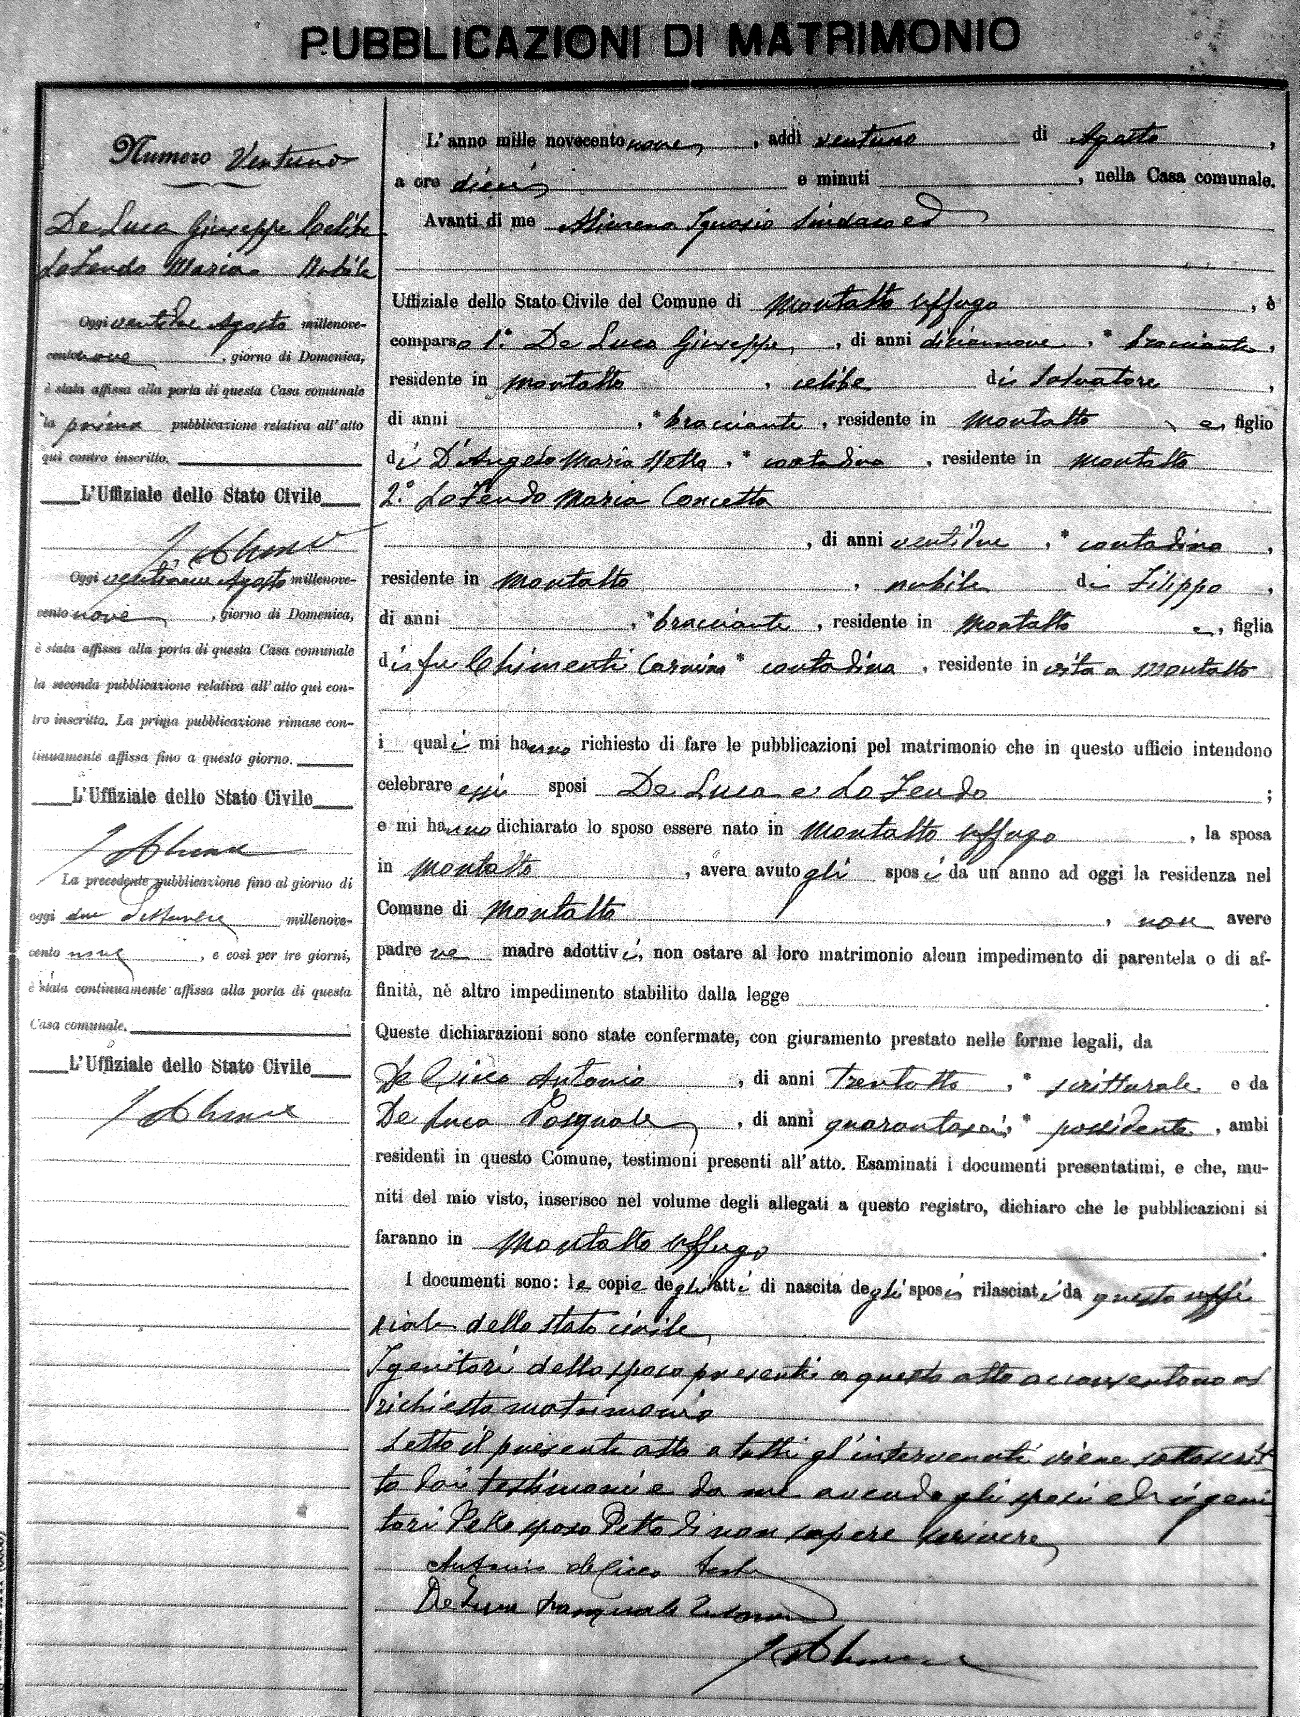 PUBBLICAZIONI DI MATRIMONIO
Numero Ventuno
De Luca Giuseppe Celibe
Lo Feudo Maria Nubile
Oggi ventidue Agosto millenove-
cento nove, giorno di Domenica,
è stata affissa alla porta di questa Casa comunale
la prima pubblicazione relativa all'atto
qui contro inscritto.
L'Uffiziale dello Stato Civile
Oggi ventinove Agosto millenove-
cento nove, giorno di Domenica,
è stata affissa alla porta di questa Casa comunale
la seconda pubblicazione relativa all'atto qui con-
tro inscritto. La prima pubblicazione rimase con-
tinuamente affissa fino a questo giorno.
L'Uffiziale dello Stato Civile
La precedente pubblicazione fino al giorno di
oggi due Settembre millenove-
cento nove, e così per tre giorni,
è stata continuamente affissa alla porta di questa
Casa comunale.
L'Uffiziale dello Stato Civile
L'anno mille novecento nove, addì ventuno di Agosto,
a ore dieci e minuti , nella Casa comunale.
Avanti di me Alimena Ignazio Sindaco ed
Uffiziale dello Stato Civile del Comune di Montalto Uffugo, è
comparso 1.° De Luca Giuseppe, di anni diciannove, * bracciante,
residente in Montalto, celibe di Salvatore,
di anni , * bracciante, residente in Montalto e, figlio
di D'Angelo Maria Stella, * contadina, residente in Montalto
2.° Lo Feudo Maria Concetta
, di anni ventidue, * contadina,
residente in Montalto, nubile di Filippo,
di anni , * bracciante, residente in Montalto e, figlia
di fu Chimenti Carmina * contadina, residente in vita a Montalto
i quali mi hanno richiesto di fare le pubblicazioni pel matrimonio che in questo ufficio intendono
celebrare essi sposi De Luca e Lo Feudo ;
e mi hanno dichiarato lo sposo essere nato in Montalto Uffugo, la sposa
in Montalto, avere avuto gli sposi da un anno ad oggi la residenza nel
Comune di Montalto, non avere
padre ne madre adottivi, non ostare al loro matrimonio alcun impedimento di parentela o di af-
finità, nè altro impedimento stabilito dalla legge .
Queste dichiarazioni sono state confermate, con giuramento prestato nelle forme legali, da
De Cicco Antonio, di anni trentotto, * scritturale e da
De Luca Pasquale, di anni quarantasei, * possidente, ambi
residenti in questo Comune, testimoni presenti all'atto. Esaminati i documenti presentatimi, e che, mu-
niti del mio visto, inserisco nel volume degli allegati a questo registro, dichiaro che le pubblicazioni si
faranno in Montalto Uffugo.
I documenti sono: le copie degli atti di nascita degli sposi rilasciati da questo uffi
ziale dello stato civile
I genitori dello sposo presenti a questo atto acconsentono al
richiesto matrimonio
Letto il presente atto a tutti gl'intervenuti viene sottoscrit
to dai testimoni e da me avendo gli sposi ed i geni
tori dello sposo detto di non sapere scrivere
Antonio de Cicco
De Luca Pasquale